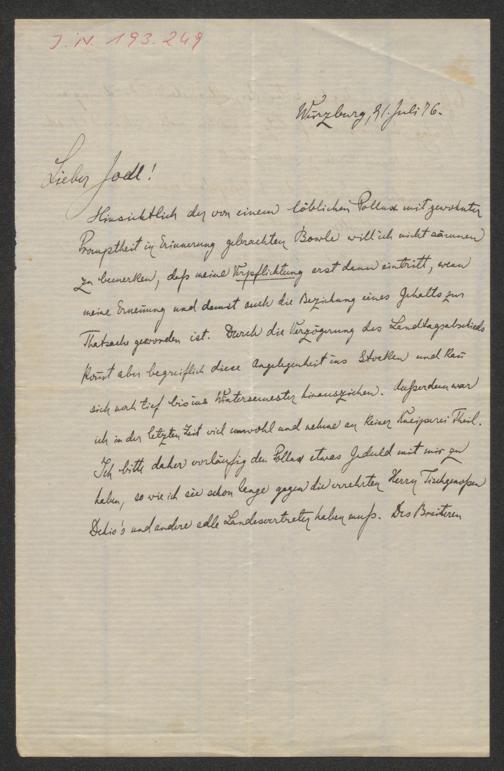 J. N. 193.249
Würzburg, 21. Juli 76.
Lieber Jodl!
Hinsichtlich der von einem löblichen Pollux mit gewohnter
Promptheit in Erinnerung gebrachten Bowle will ich nicht säumen
zu bemerken, daß meine Verpflichtung erst dann eintritt, wenn
meine Ernennung und damit auch die Beziehung eines Gehalts zur
Thatsache geworden ist. Durch die Verzögerung des Landtagsabschieds
kommt aber begreiflich diese Angelegenheit ins Stocken und kan
sich noch tief bis ins Wintersemester hinausziehen. Außerdem war
ich in der letzten Zeit viel unwohl und nehme an keiner Kneiperei Theil.
Ich bitte daher vorläufig den Pollux etwas Geduld mit mir zu
haben, so wie ich sie schon lange gegen die verehrten Herrn Tischgenossen
Dehio's und andere edle Landesvertreter haben muß. Des Breiteren